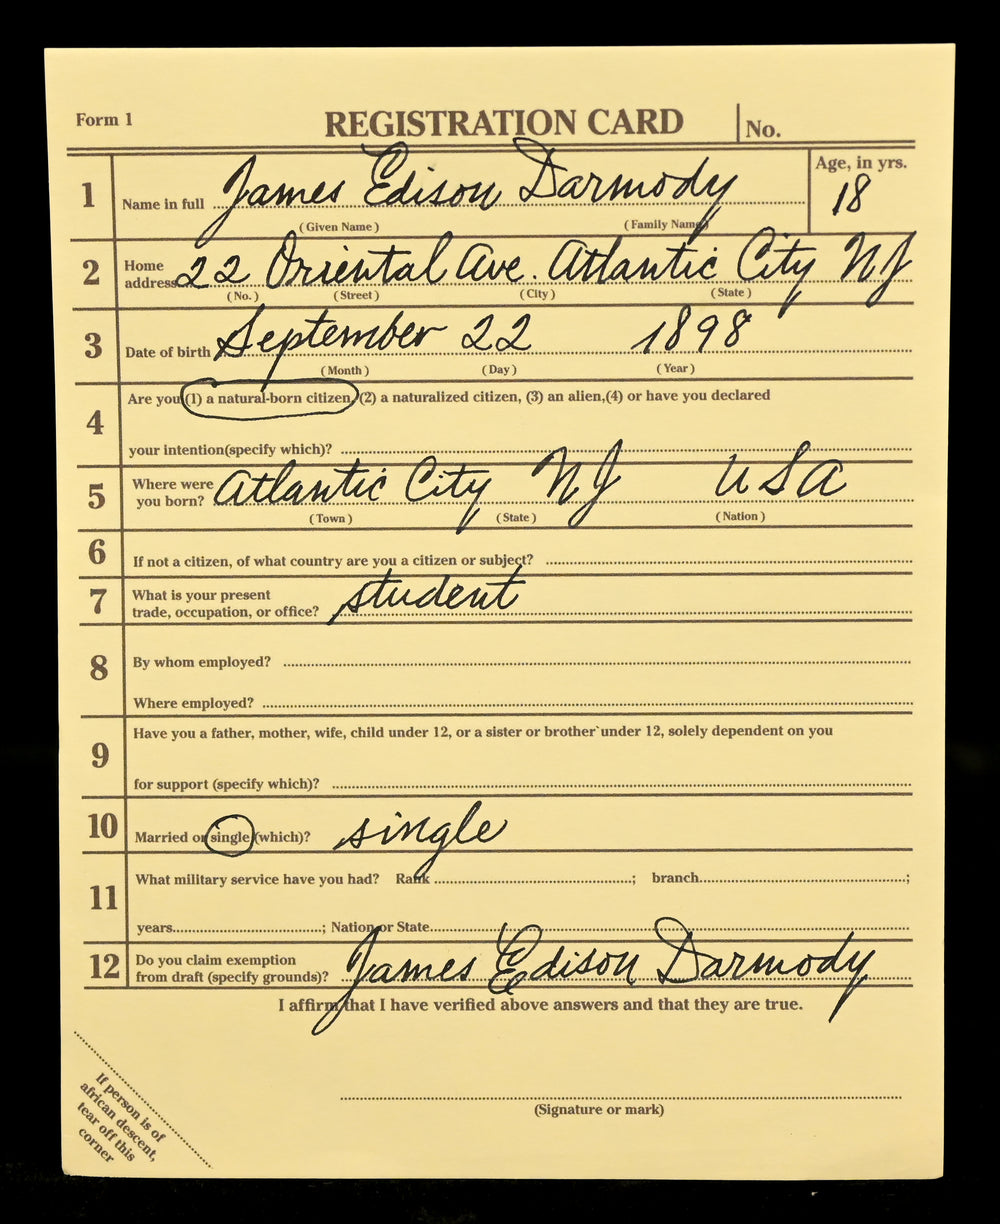 Form 1 REGISTRATION CARD No.
1 Name in full James Edison Darmody Age, in yrs. 18
(Given Name) (Family Name)
2 Home address 22 Oriental Ave. Atlantic City NJ
(No.) (Street) (City) (State)
3 Date of birth September 22 1898
(Month) (Day) (Year)
4 Are you (1) a natural-born citizen, (2) a naturalized citizen, (3) an alien,(4) or have you declared
your intention(specify which)?
5 Where were you born? Atlantic City NJ USA
(Town) (State) (Nation)
6 If not a citizen, of what country are you a citizen or subject?
7 What is your present
trade, occupation, or office? student
8 By whom employed?
Where employed?
9 Have you a father, mother, wife, child under 12, or a sister or brother`under 12, solely dependent on you
for support (specify which)?
10 Married or single (which)? single
11 What military service have you had? Rank ; branch ;
years ; Nation or State
12 Do you claim exemption
from draft (specify grounds)? James Edison Darmody
I affirm that I have verified above answers and that they are true.
(Signature or mark)
If person is of
african descent,
tear off this
corner